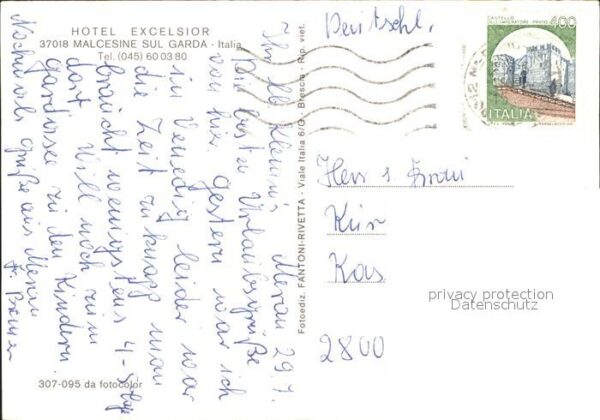 HOTEL EXCELSIOR
37018 MALCESINE SUL GARDA - Italia
Tel. (045) 60 03 80
Meran 29.7.
Ihr lb. Kleinis
Die besten Urlaubsgrüße
von hier. Gestern war ich
in Venedig leider war
die Zeit zu knapp man
braucht wenigstens 4-5 Tage
dort. Will noch zum
Gardasee zu den Kindern.
Nochmals Grüße aus Meran
Fotoediz. FANTONI-RIVETTA - Viale Italia 6/G - Brescia - Rip. viet.
307-095 da fotocolor
Deutschl.
CASTELLO
DELL'IMPERATORE - PRATO
400
ITALIA
Herr u. Frau
2800
privacy protection
Datenschutz